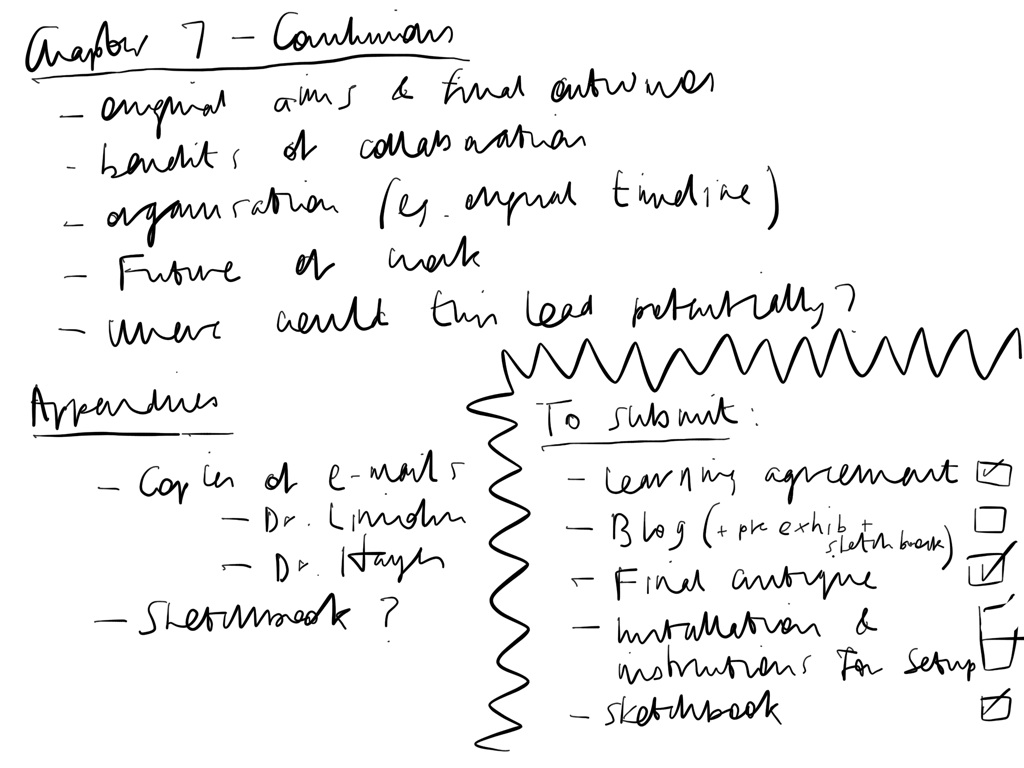 Chapter 7 - Conclusions
- original aims & final outcomes
- benefits of collaboration
- organisation (eg. original timeline)
- Future of work
- where could this lead potentially?
Appendices
- Copies of e-mails
- Dr. Lincoln
- Dr. Hayes
- Sketchbook ?
To submit:
- Learning agreement
- Blog (+ pre exhib +
sketchbook)
- Final critique
- Installation &
instructions for setup
- sketchbook